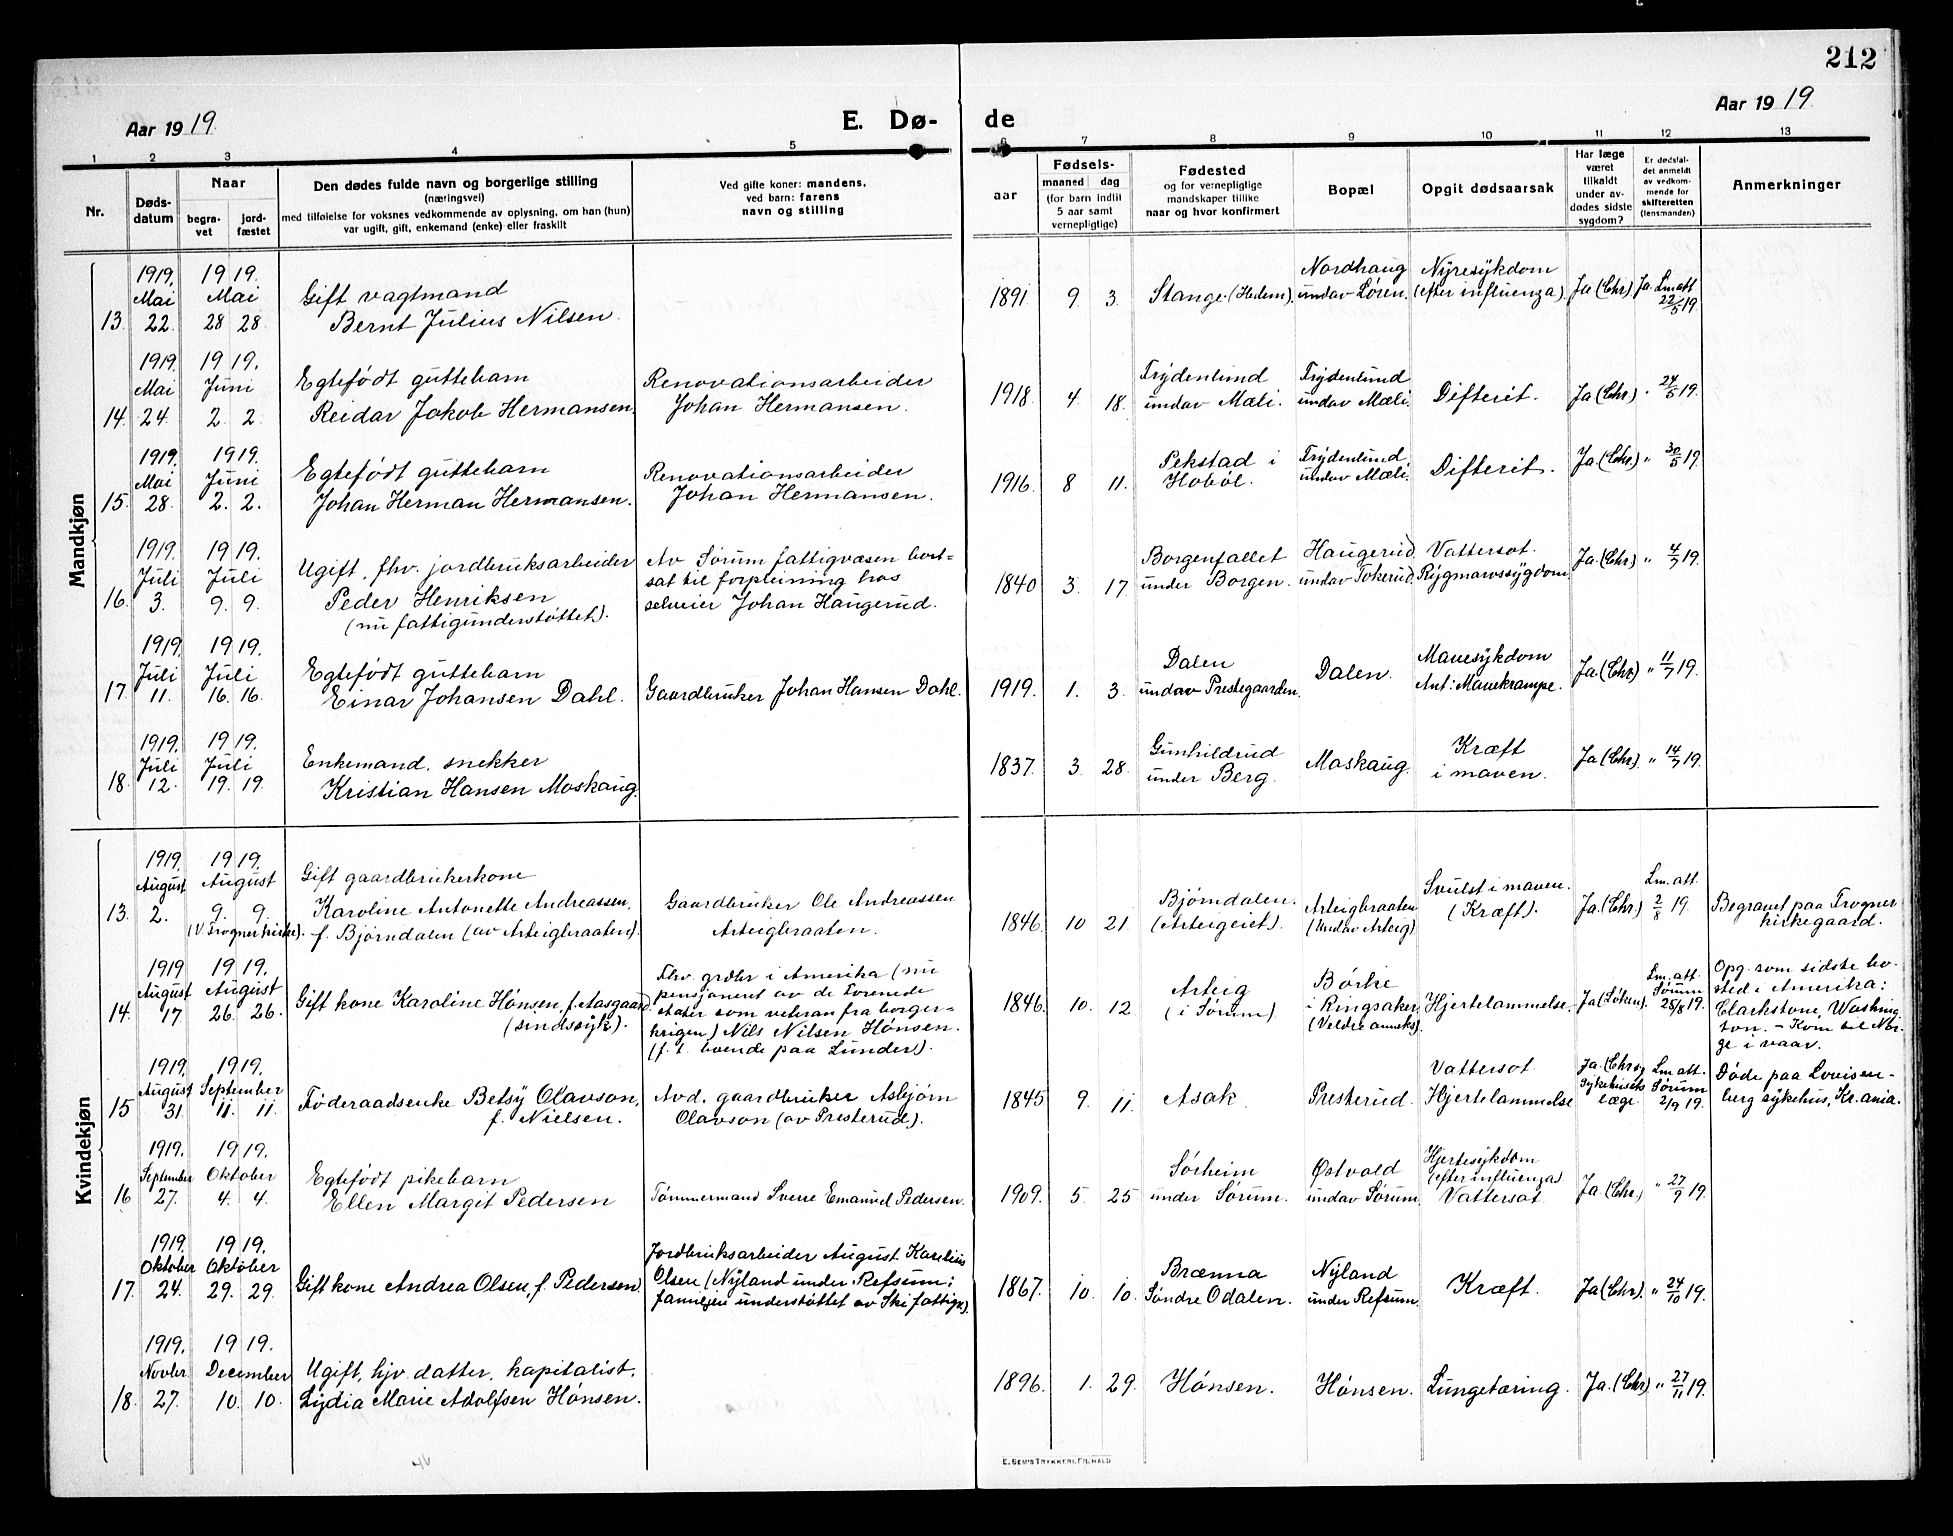 212
Aar 1919.
E. Dø-
de
Aar 1919
1 2 3 4 5 6 7 8 9 10 11 12 13
Nr.
Døds-
datum
Naar
begra-
vet
jord-
fæstet
Den dødes fulde navn og borgerlige stilling
(næringsvei)
med tilføielse for voksnes vedkommende av oplysning, om han (hun)
var ugift, gift, enkemand (enke) eller fraskilt
Ved gifte koner: mandens,
ved barn: farens
navn og stilling
aar
Fødsels-
maaned dag
(for barn indtil
5 aar samt
vernepligtige)
Fødested
og for vernepligtige
mandskaper tillike
naar og hvor konfirmert
Bopæl
Opgit dødsaarsak
Har læge
været
tilkaldt
under av-
dødes sidste
sygdom?
Er dødsfal-
det anmeldt
av vedkom-
mende for
skifteretten
(lensmanden)
Anmerkninger
Mandkjøn
13. 1919. Mai 22. 1919. Mai 28 28.
Gift vagtmand
Bernt Julius Nilsen.
1891. 9. 3.
Stange (Hedem).
Nordhaug
undav Løren.
Nyresykdom
(efter influenza).
Ja (Chr)
Ja. Lm. att
22/5 19.
14. 1919. Mai 24. 1919. Juni 2. 2.
Egtefødt guttebarn
Reidar Jakob Hermansen.
Renovationsarbeider
Johan Hermansen.
1918. 4. 18.
Frydenlund
undav Mæli.
Frydenlund
undav Mæli.
Difterit.
Ja (Chr.)
" 24/5 19.
15. 1919. Mai 28. 1919. Juni 2. 2.
Egtefødt guttebarn
Johan Herman Hermansen.
Renovationsarbeider
Johan Hermansen.
1916. 8 11.
Pekstad i
Hobøl.
Frydenlund
undav Mæli.
Difterit.
Ja (Chr.)
" 30/5 19.
16. 1919. Juli 3. 1919. Juli 9. 9.
Ugift, fhv. jordbruksarbeider
Peder Henriksen
(nu fattigunderstøttet).
Av Sørum fattigvæsen bort-
sat til forpleining hos
selveier Johan Haugerud.
1840 3. 17.
Borgenfallet
under Borgen.
Haugerud
undav Tokerud.
Vattersot.
Rygmarvssygdom
Ja (Chr.)
" 4/7 19.
17. 1919. Juli 11. 1919. Juli 16. 16.
Egtefødt guttebarn
Einar Johansen Dahl.
Gaardbruker Johan Hansen Dahl.
1919. 1. 3.
Dalen
undav Prestegaarden.
Dalen.
Mavesykdom
Ant: Mavekrampe.
Ja (Chr)
" 11/7 19.
18. 1919. Juli 12. 1919. Juli 19. 19.
Enkemand, snekker
Kristian Hansen Moskaug.
1837. 3. 28.
Gunhildrud
under Berg.
Moskaug.
Kræft
i maven.
Ja (Chr.)
" 14/7 19.
Kvindekjøn
13. 1919. August 2. 1919. August 9. 9.
(V. Trogner kirke).
Gift gaardbrukerkone
Karoline Antonette Andreassen,
f. Bjørndalen (av Arteigbraaten).
Gaardbruker Ole Andreassen
Arteigbraaten.
1846. 10 21.
Bjørndalen.
(Arteigeiet).
Arteigbraaten
(undav Arteig)
Svulst i maven.
(Kræft).
Ja. (Chr.)
Lm. att.
2/8 19.
Begravet paa Trogner
kirkegaard.
14. 1919 August 17. 1919. August 26. 26.
Gift kone Karoline Hønsen, f. Aasgaard.
(sindssyk).
Fhv. grdbr i Amerika (nu
pensjoneret av de Forenede
stater som veteran fra borger-
krigen) Nils Nilsen Hønsen.
(f. t. boende paa Lunder).
1846. 10. 12.
Arteig
(i Sørum)
Børke
i Ringsaker
(Veldre anneks)
Hjertelammelse.
Ja
Lm. att.
Sørum
25/8 19.
Opg. som sidste bo-
sted i Amerika:
Clarkstone, Washing
ton. – Kom til Nor-
ge i vaar.
15 1919. August 31. 1919. September 11. 11.
Føderaadsenke Betsy Olavson,
f. Nielsen.
Avd. gaardbruker Asbjørn
Olavson (av Presterud).
1845 9. 11.
Asak.
Presterud.
Vattersot
Hjertelammelse
Ja. (Chr og
sykehusets
læge
Lm. att.
Sørum
2/9 19.
Døde paa Lovisen-
berg sykehus, Kr.ania.
16 1919. September 27. 1919. Oktober 4. 4.
Egtefødt pikebarn
Ellen Margit Pedersen
Tømmermand Sverre Emanuel Pedersen.
1909. 5. 25
Sørheim
under Sørum.
Østvold
undav Sørum.
Hjertesykdom
(efter influenza)
Vattersot
Ja (Chr.)
" 27/9 19.
17. 1919. Oktober 24. 1919. Oktober 29. 29.
Gift kone Andrea Olsen, f. Pedersen.
Jordbruksarbeider August Karelius
Olsen (Nyland under Refsum;
familjen understøttet av Ski fattigk).
1867. 10. 10.
Brænna
Søndre Odalen.
Nyland
under Refsum.
Kræft.
Ja (Chr).
" 24/10 19.
18. 1919. Novbr 27. 1919. December 10. 10.
Ugift, hjv. datter, kapitalist.
Lydia Marie Adolfsen Hønsen.
1896. 1. 29.
Hønsen.
Hønsen.
Lungetæring.
Ja. (Chr)
" 27/11 19.
E. SEM'S TRYKKERI, FR.HALD